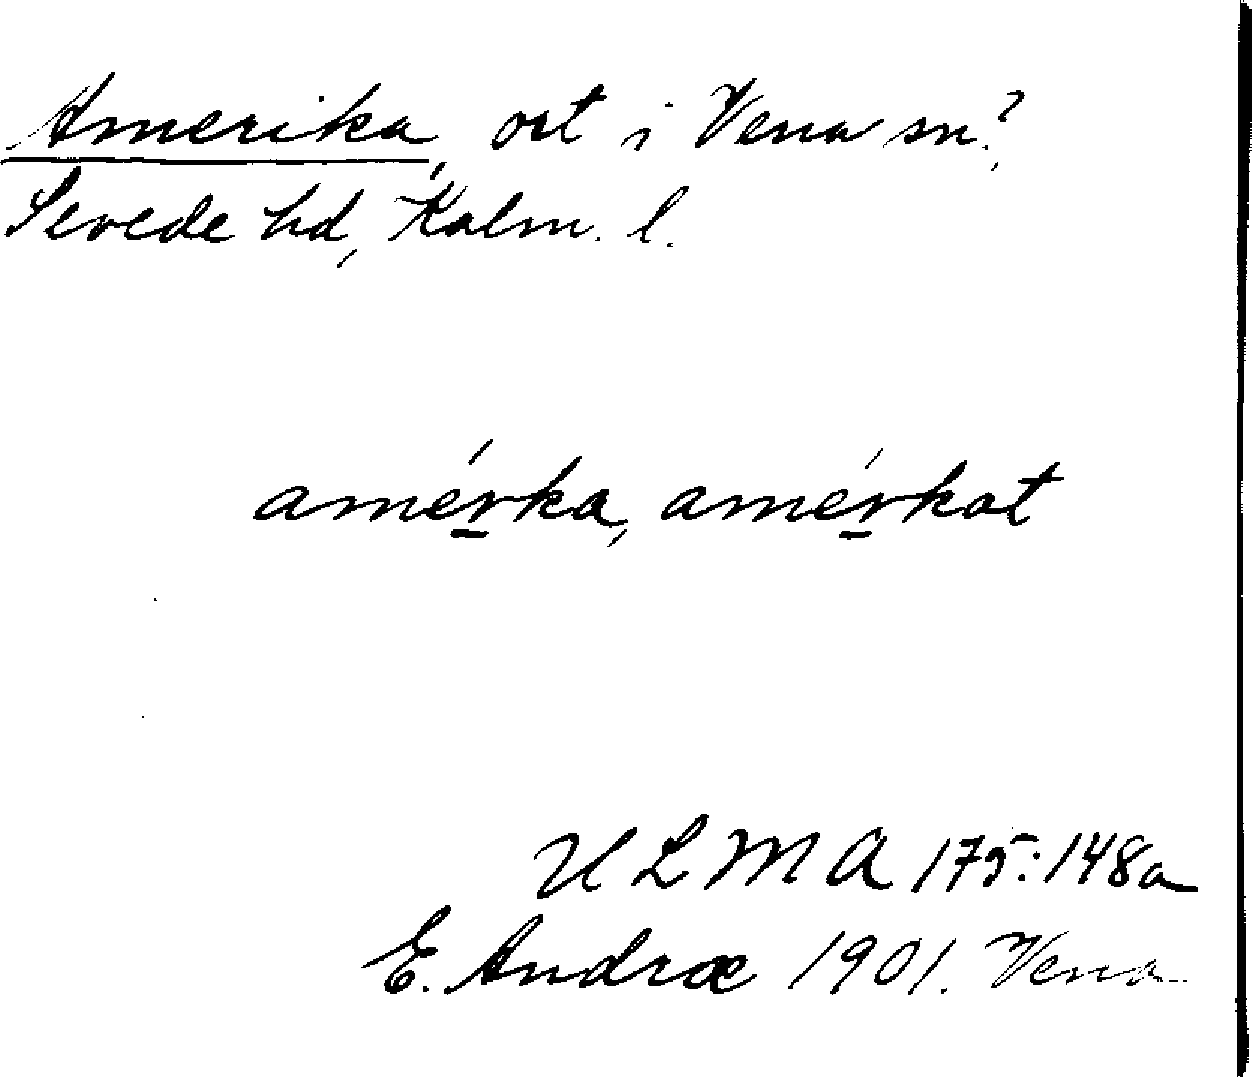 Amerika, ort i Vena sn?,
Sevede hd, Kalm. l.
amérka, amérkat
ULMA 175:148a
E. Andræ 1901. Vena